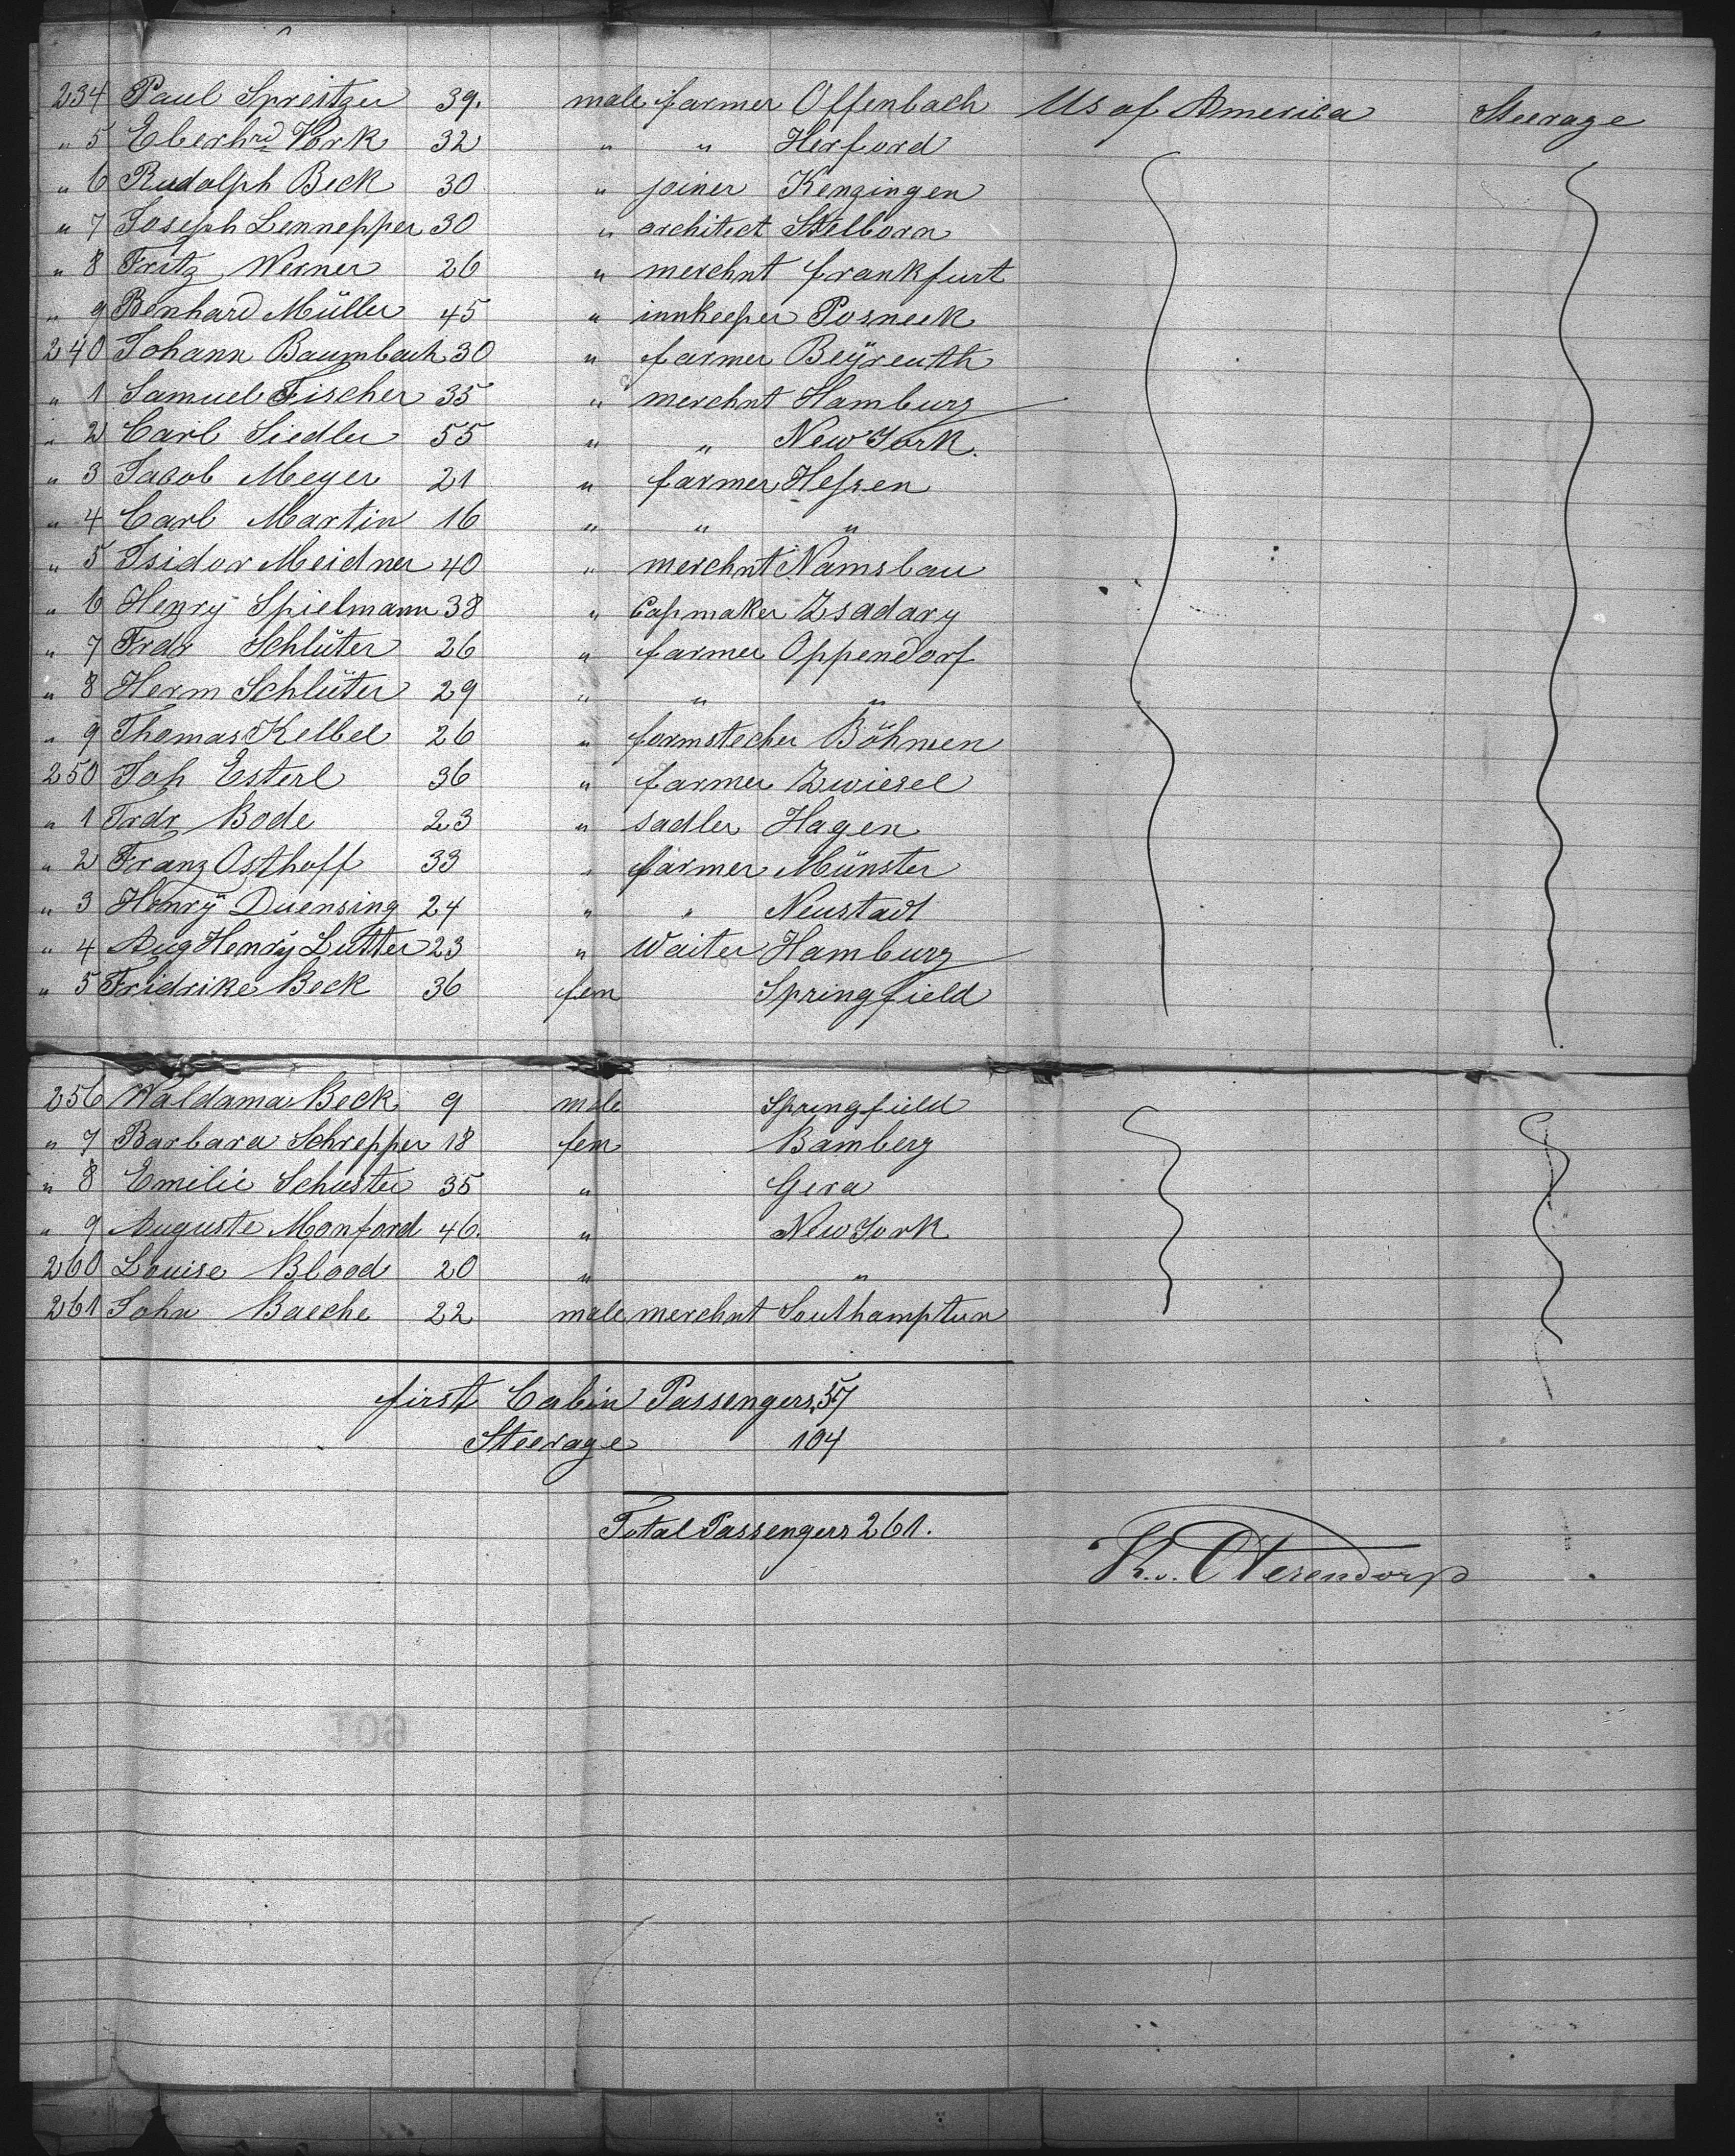 234 Paul Spreitzer 39. male farmer Offenbach US of America Steerage
" 5 Eberhrd Vork 32 " " Herford
" 6 Rudolph Beck 30 " joiner Kenzingen
" 7 Joseph Lennepper 30 " architect Stelborn
" 8 Fritz Werner 26 " merchnt Frankfurt
" 9 Benhard Müller 45 " innkeeper Posneck
240 Johann Baumbach 30 " farmer Beÿreuth
" 1 Samuel Fischer 35 " merchnt Hamburg
" 2 Carl Siedler 55 " " New York.
" 3 Jacob Meyer 21 " farmer Hessen
" 4 Carl Martin 16 " " "
" 5 Isidor Meidner 40 " merchnt Namslau
" 6 Henry Spielmann 38 " Capmaker Zsadary
" 7 Frdr Schlüter 26 " farmer Oppendorf
" 8 Herm Schlüter 29 " " "
" 9 Thomas Kelbel 26 " formstecher Böhmen
250 Joh Esterl 36 " farmer Zwiesel
" 1 Frdr Bode 23 " sadler Hagen
" 2 Franz Osthoff 33 " farmer Münster
" 3 Henrÿ Duensing 24 " " Neustadt
" 4 Aug Henrÿ Lutter 23 " Waiter Hamburg
" 5 Fridrike Beck 36 fem Springfield
256 Waldama Beck 9 male Springfield
" 7 Barbara Schrepper 18 fem Bamberg
" 8 Emilie Schuster 35 " Gera
" 9 Auguste Monford 46. " New York
260 Louise Blood 20 " "
261 John Baeche 22 male merchnt Southampton
first Cabin Passengers 57
Steerage 104
Total Passengers 261.